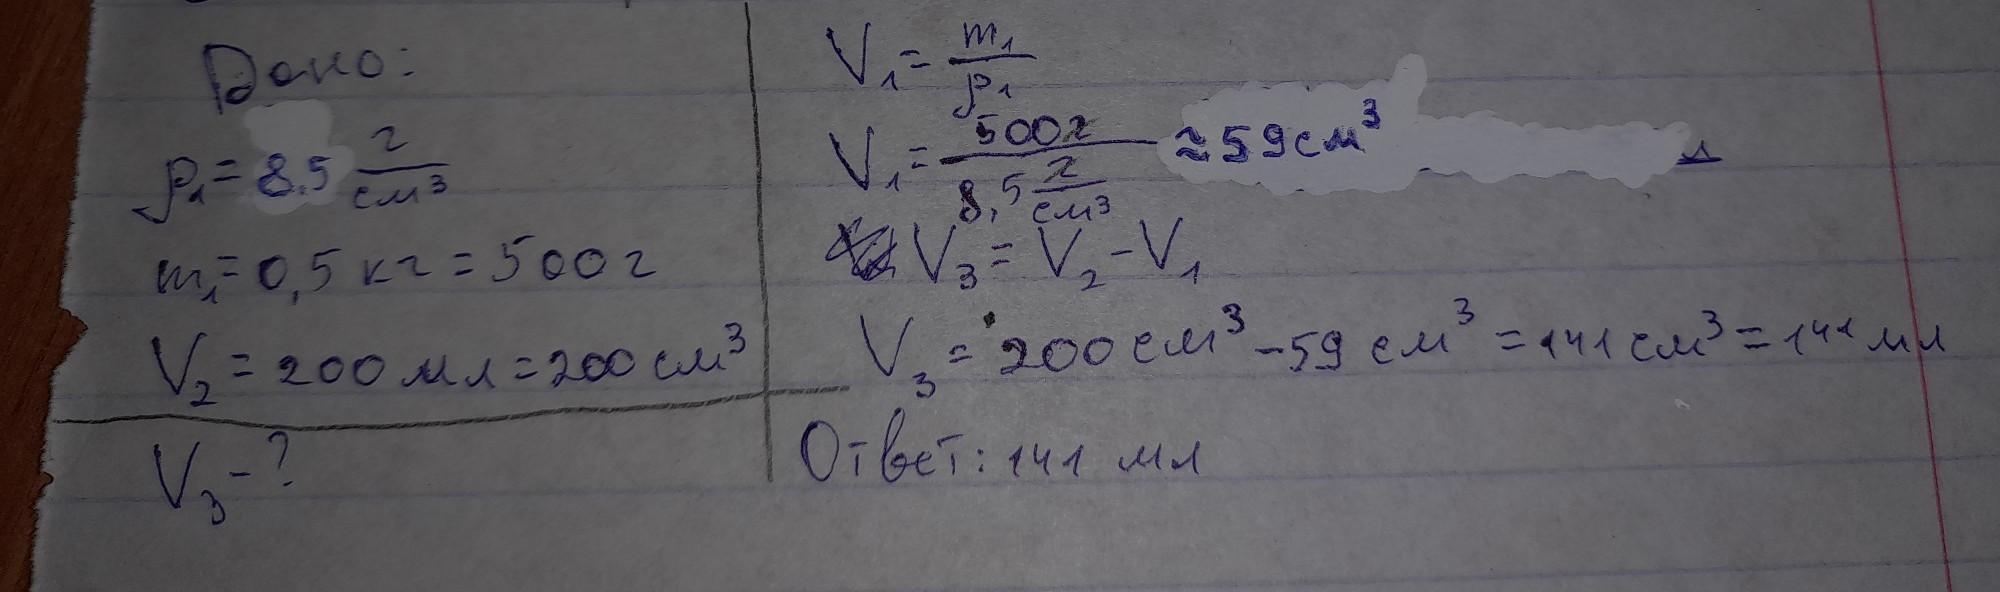 Дано:
ρ₁ = 8.5 г/см³
m₁ = 0,5 кг = 500 г
V₂ = 200 мл = 200 см³
V₃ - ?
V₁ = m₁/ρ₁
V₁ = 500г / 8,5 г/см³ ≈ 59 см³
V₃ = V₂ - V₁
V₃ = 200 см³ - 59 см³ = 141 см³ = 141 мл
Ответ: 141 мл